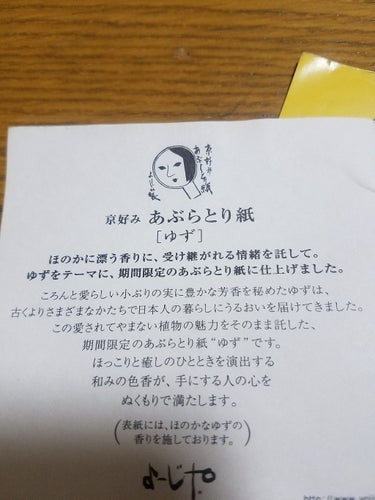 京好み
あぶらとり紙
よーじや
京好み あぶらとり紙
[ゆず]
ほのかに漂う香りに、受け継がれる情緒を託して。
ゆずをテーマに、期間限定のあぶらとり紙に仕上げました。
ころんと愛らしい小ぶりの実に豊かな芳香を秘めたゆずは、
古くよりさまざまなかたちで日本人の暮らしにうるおいを届けてきました。
この愛されてやまない植物の魅力をそのまま託した、
期間限定のあぶらとり紙“ゆず”です。
ほっこりと癒しのひとときを演出する
和みの色香が、手にする人の心を
ぬくもりで満たします。
(表紙には、ほのかなゆずの
香りを施しております。)
よーじや